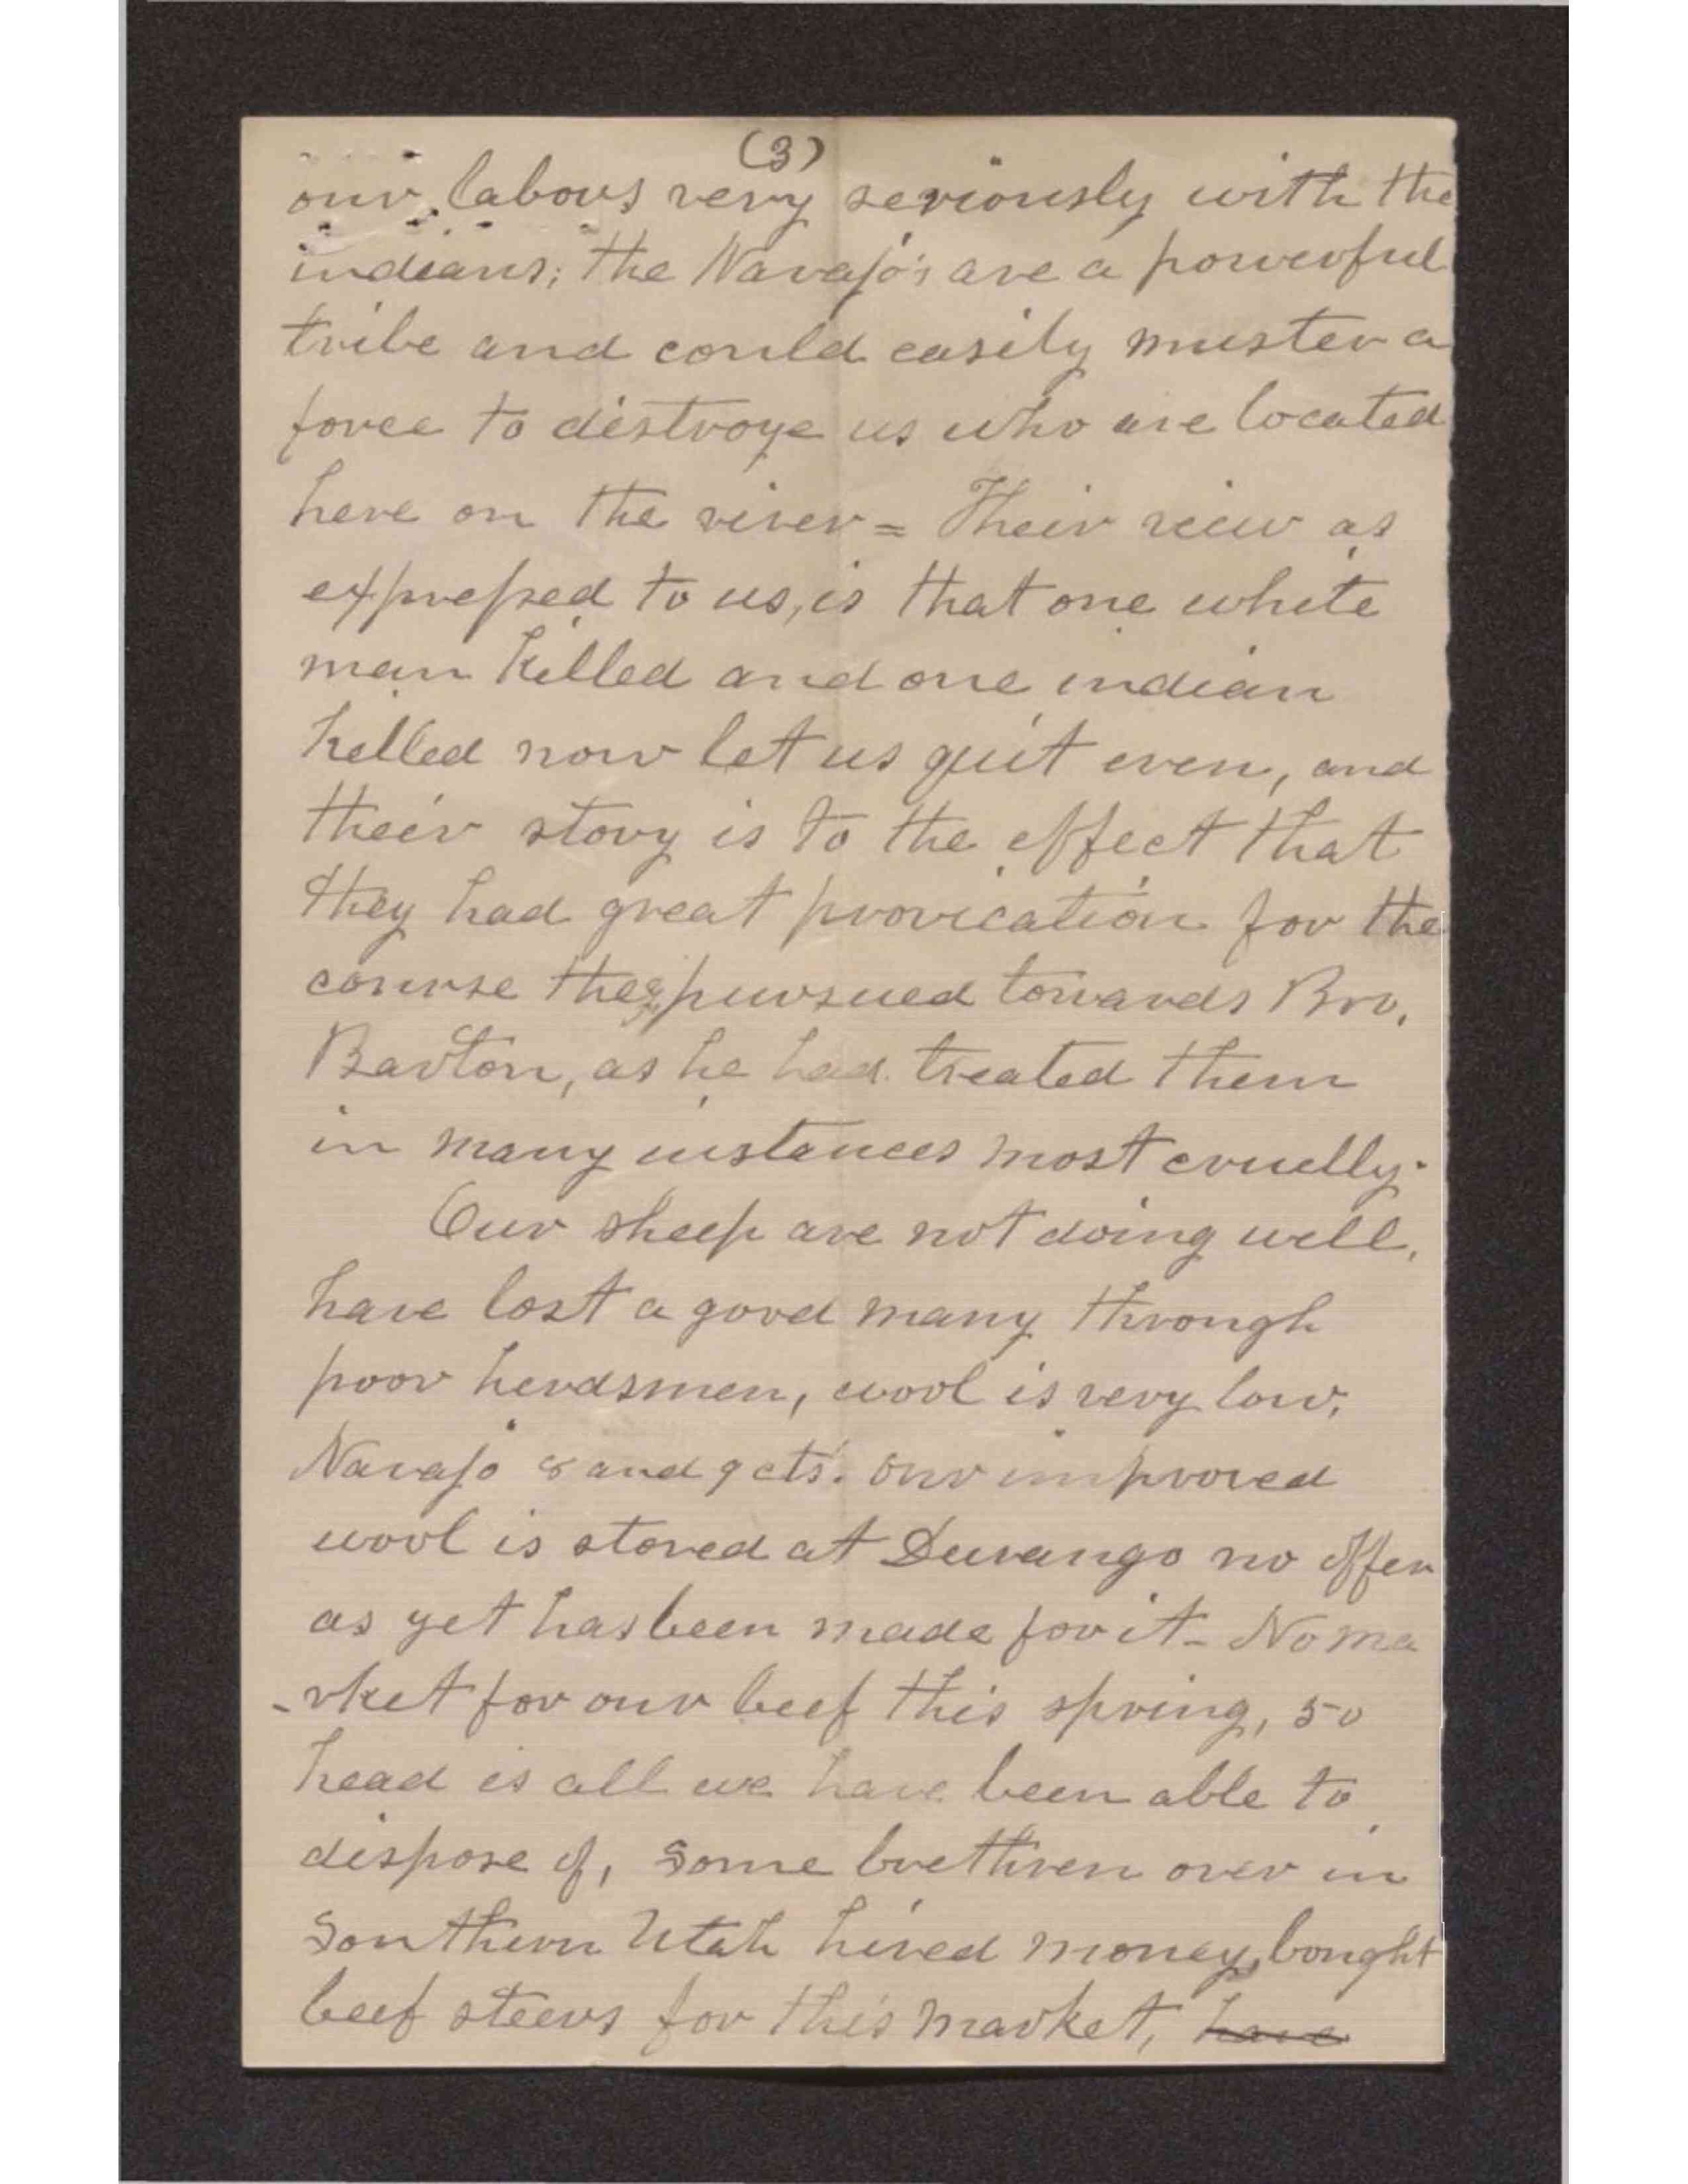 (3)
our labours very seriously with the
indians; the Navajo's are a powerful
tribe and could easily muster a
force to distroye us who are located
here on the river = Their view as
expressed to us, is that one white
man killed and one indian
killed now let us quit even, and
their story is to the effect that
they had great provication for the
course they pursued towards Bro.
Barton, as he had treated them
in many instances most cruelly.
Our sheep are not doing well,
have lost a good many through
poor herdsmen, wool is very low,
Navajo 8 and 9 cts. our improved
wool is stored at Durango no offer
as yet has been made for it - No ma
-rket for our beef this spring, 50
head is all we have been able to
dispose of, some brethren over in
Southern Utah hired money, bought
beef steers for this market, have